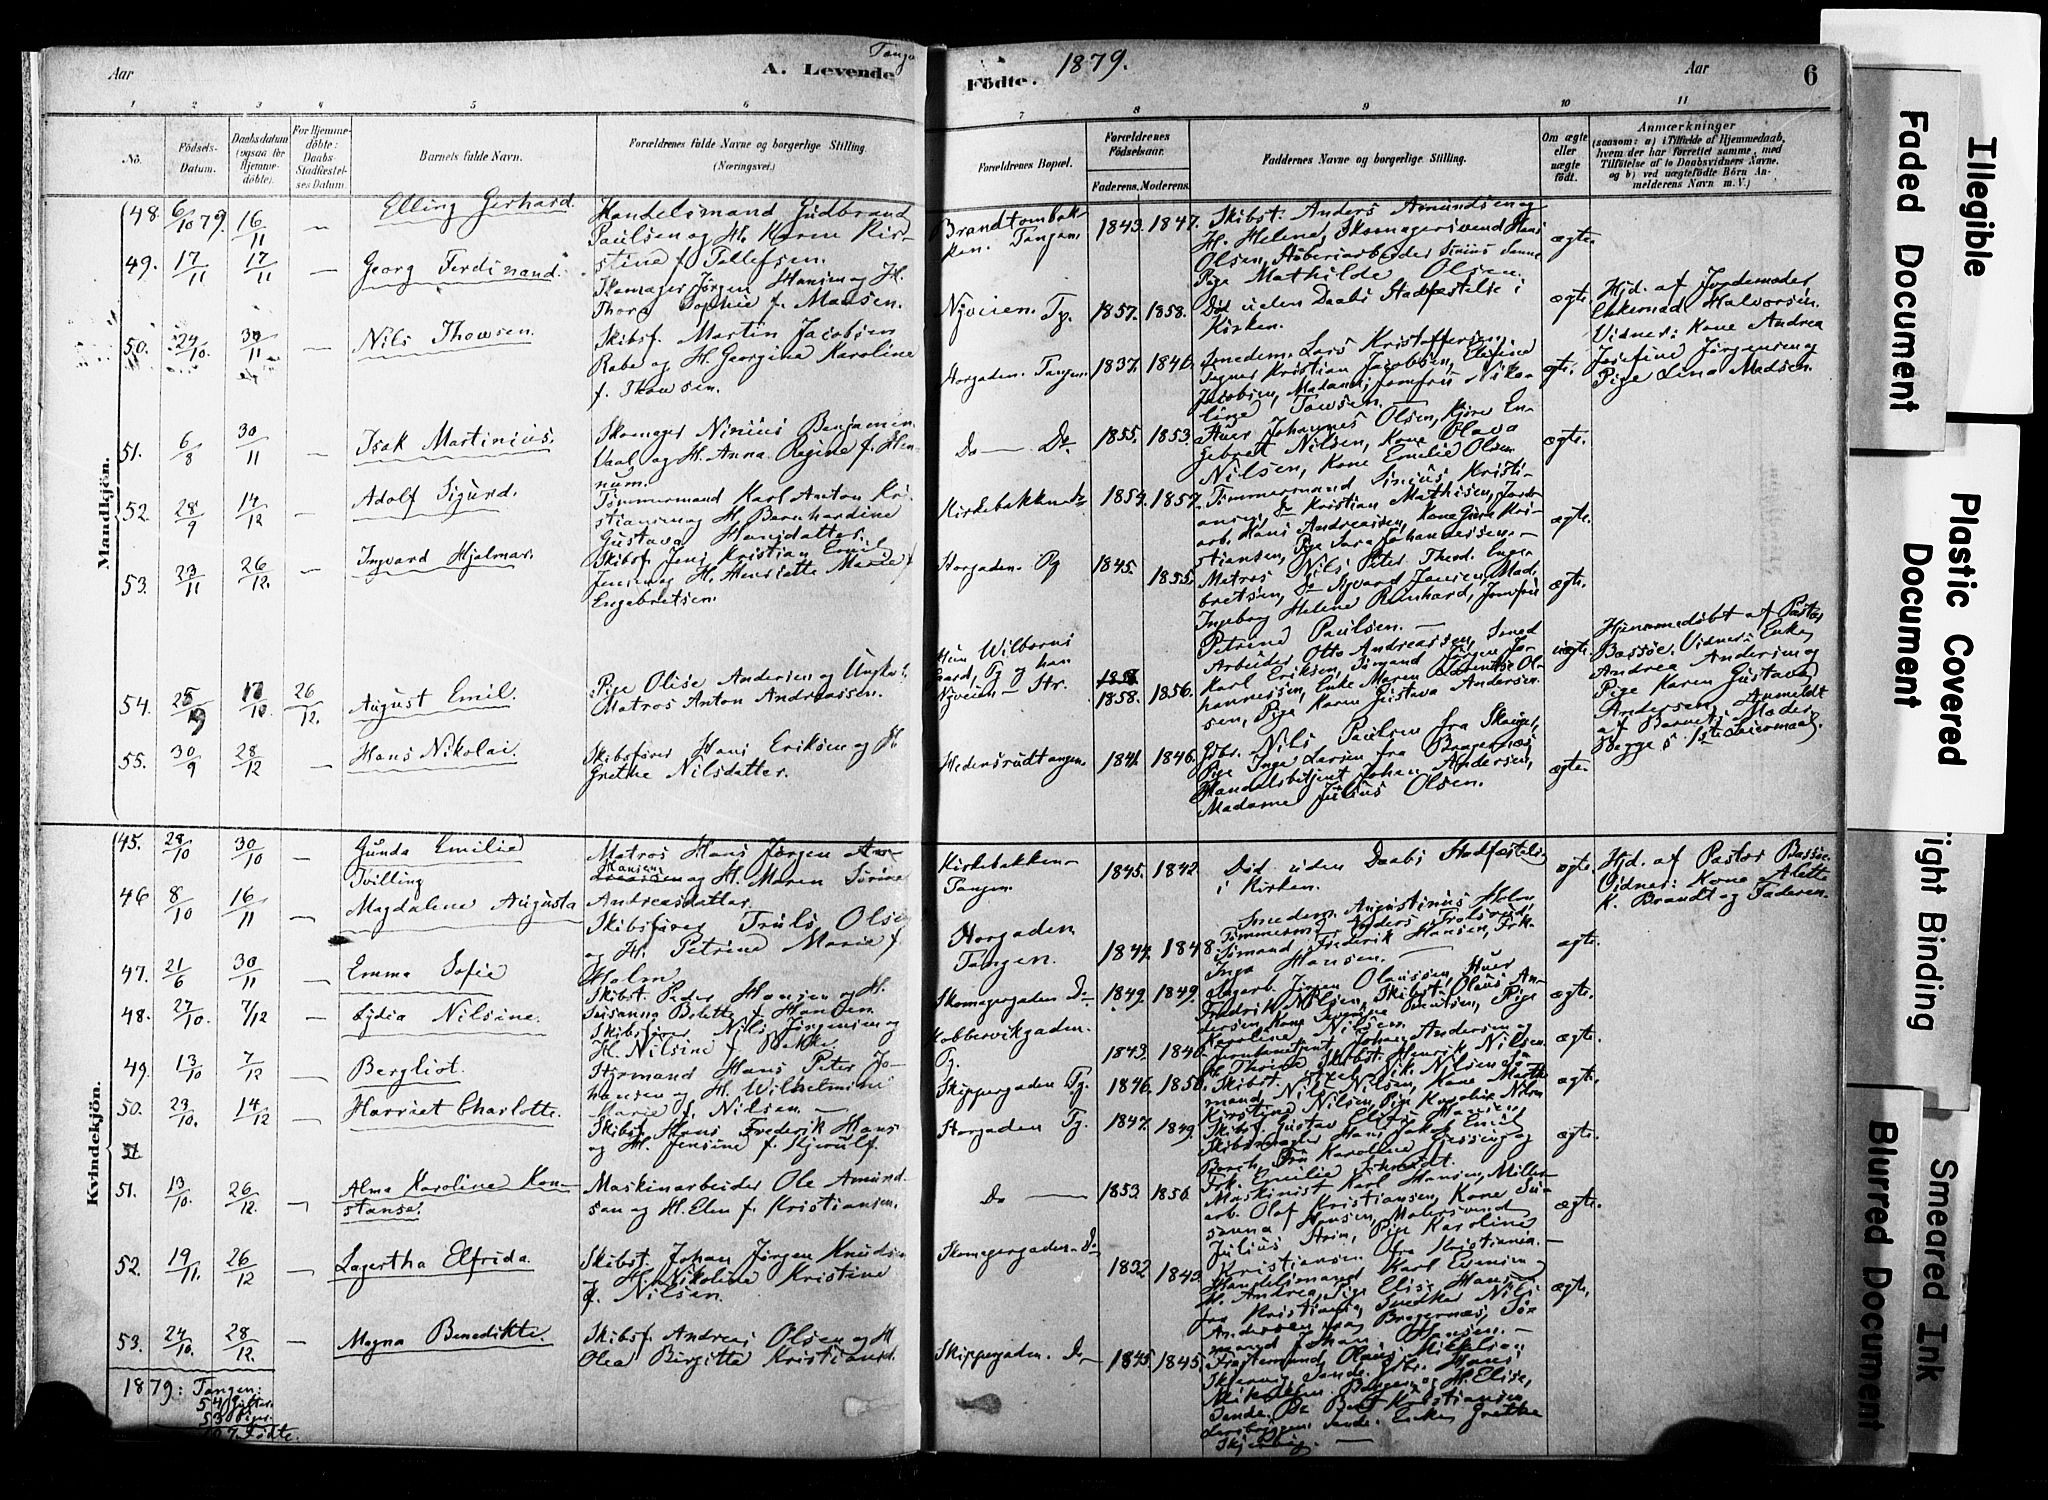 Tangen
1879.
Aar
A. Levende
Födte.
Aar
6
1 2 3 4 5 6 7 8 9 10 11
No.
Födsels-
Datum.
Daabsdatum
(ogsaa för
Hjemme-
döbte).
For Hjemme-
döbte:
Daabs-
Stadfæstel-
ses Datum.
Barnets fulde Navn.
Forældrenes fulde Navne og borgerlige Stilling.
(Næringsvei.)
Forældrenes Bopæl.
Forældrenes
Födselsaar.
Faderens. Moderens.
Faddernes Navne og borgerlige Stilling.
Om ægte
eller
uægte
födt.
Anmærkninger
(saasom: a) i Tilfælde af Hjemmedaab,
hvem der har forrettet samme, med
Tilföielse af to Daabsvidners Navne.
og b) ved uægtefödte Börn An-
melderens Navn m. V.)
Mandkjön.
48. 6/10 79. 16/11 — Elling Gerhard.
Handelsmand Gudbrand
Paulsen og H. Karen Kir-
stine f. Tollefsen.
Tangen. 1843. 1847.
Skibst. Anders Amundsen og
H. Helene, Skomagersvend Hans
Pige Mathilde Olsen.
ægte.
49. 17/11 17/11 — Georg Ferdinand.
Skomager Jørgen Hansen og H.
Thora Sophie f. Madsen.
Nyveien. Tg. 1857. 1858.
Død uden Daabs Stadfæstelse i
Kirken.
ægte.
Hjd. af Jordemoder
Halvorsen.
Vidner: Kone Andrea
Josefine Jørgensen og
Pige Lina Madsen.
50. 24/10. 30/11 — Nils Thowsen.
Skibsf. Martin Jacobsen
Rabe og H. Georgine Karoline
f. Thowsen.
Storgaden. Tangen. 1837. 1846.
Smedem. Lars Kristoffersen,
Kristian Jacobsen,
Jacobsen, Madam, Jomfru Niko-
line Towsen. —
ægte.
51. 6/8 30/11 — Isak Martinius.
Skomager Ninius Benjamin
Vaal og H. Anna Regine f. Hen-
num.
Do — Do 1855. 1853.
Johannes Olsen, Kjøre En-
gebret Nilsen, Kone Olava
Nilsen, Kone Emelie Olsen
ægte.
52. 28/9 14/12 — Adolf Sigurd.
Tømmermand Karl Anton Kri-
stiansen og H. Bernhardine
Gustava Hansdatter.
Kirkebakken Do 1854. 1857.
Tømmermand Sinius Kristi-
ansen, Do Kristian Mathisen, Jordb-
arb. Hans Andreassen, Kone Kri-
stiansen, Pige Sara Johannessen. —
ægte.
53. 23/11 26/12. — Ingvard Hjalmar.
Skibsf. Jens Kristian Emil
Jensen og H. Henriette Marie f.
Engebretsen.
Storgaden. Tg 1845. 1855.
Matros Nils Peter Theod. Enge-
bretsen, Do Sigvard Jensen, Mad.
Ingeborg Helene Reinhard, Jomfru
Petrine Paulsen. —
ægte.
54. 25/9 17/10 26/12. August Emil.
Pige Olise Andersen og Ungk.
Matros Anton Andreassen.
Hun Wilborns
Gaard, Tg og han
Nyveien — Str.
1858. 1856.
Arbeider Otto Andreassen, Smed
Karl Eriksen, Sømand Jørgen Jo-
hannessen, Enke Maren Lorentse Ol-
sen, Pige Karen Gustava Andersen.
uægte.
Hjemmedøbt af Pastor
Bassøe. Vidner: Enke
Andrea Andersen og
Pige Karen Gustava
Andersen, Anmeldt
af Barnets Moder
Begges 1ste Leiermaal.
55. 30/9 28/12 — Hans Nikolai.
Skibsfører Hans Eriksen og H.
Grethe Nilsdatter.
Hedensrudtangen. 1841. 1846.
Gbr. Nils Paulsen fra Skauger,
Pige Inga Larsen fra Bragernæs,
Handelsbetjent Johan Andersen,
Madame Julius Olsen.
ægte.
Kvindekjön.
45. 28/10 30/10 — Gunda Emilie
Tvilling
Matros Hans Jørgen
Hansen og H. Maren Sørine
Andreasdatter.
Kirkebakken
Tangen. 1845. 1842
Død uden Daabs Stadfæstelse
i Kirken.
ægte.
Hjd. af Pastor Bassøe.
Vidner: Kone Alette
K. Brandt og Faderen.
46 8/10 16/11 — Magdalene Augusta
Skibsfører Truls Olsen
og H. Petrine Marie f.
Holm.
Storgaden
Tangen. 1844. 1848.
Smedem. Augustinus Holm,
Tømmermd. Anders Trolsrud,
Sømand Frederik Hansen, Frk.
Inga Hansen. —
ægte.
47. 21/6 30/11 — Emma Sofie
Skibst. Peder Hansen og H.
Susanna Bolette f. Hansen.
Skomagergaden Do 1849. 1849.
Jørgen Olaussen,
Fredrik Nilsen, Skibst. Olaus An-
dersen, Kone Severine Bentsen, Pige
Karoline Nilsen.
ægte.
48. 27/10. 7/12 — Lydia Nilsine.
Skibsfører Nils Jørgensen og
H. Nilsine f. Bakke.
Kobbervikgaden.
Tg. 1843. 1846.
Johan Andersen og
H. Thrine, Skibst. Henrik Nilsen.
ægte.
49. 13/10 7/12 — Bergliot.
Styrmand Hans Peter Jo-
hansen og H. Wilhelmine
Marie f. Nilsen. —
Skippergaden Tg. 1846. 1850.
Skibst. Axel Nik. Nilsen,
mand Nils Nilsen, Kone Marthe
Kirstine Nilsen, Pige Karoline Nilsen
ægte.
50. 23/10. 14/12 — Harriet Charlotte.
Skibsf. Hans Frederik Hans
og H. Jensine f. Kjerulf.
Storgaden Tg. 1847. 1849.
Skibsf. Gustav Elias Hansen,
Skibsmægler Hans Jakob Emil
Borch, Fru Karoline
Frk. Emilie Schmidt.
ægte.
51. 13/10. 26/12. — Alma Karoline Kon-
stanse.
Maskinarbeider Ole Amund-
sen og H. Elen f. Kristiansen.
Do — 1853. 1856.
Maskinist Karl Hansen, Mølle-
arb. Olaf Kristiansen, Kone Su-
sanna Hansen, Malersvend
Julius Pige Karoline
Kristiansen fra Kristiania. —
ægte.
52. 19/11. 26/12 — Lagertha Elfrida.
Skibst. Johan Jørgen Knudsen
og H. Nikoline Kristine
f. Nilsen.
Skomagergaden. Do 1832 1843.
Handelsmand Karl Evensen,
H. Andrea, Pige Elise Hansen
fra Kristiania, Snedker Nils
Andersen Bragernæs, Sø-
mand Johan Hansen. —
ægte.
53. 24/10. 28/12. — Magna Benedikte.
Skibsf. Andreas Olsen og H.
Olea Birgitte Kristiansd.
Skippergaden. Do 1845 1845.
Olaus Mikkelsen
Sande. Gbr. Hans
Mikkelsen og H. Elise,
Sande. Kristiansen
Sande. Enke Grethe
1879: Tangen:
54 Gutter.
53 Piger.
107 Fødte.
Illegible
Faded Document
Plastic Covered
Document
ight Binding
Smeared Ink
Blurred Document